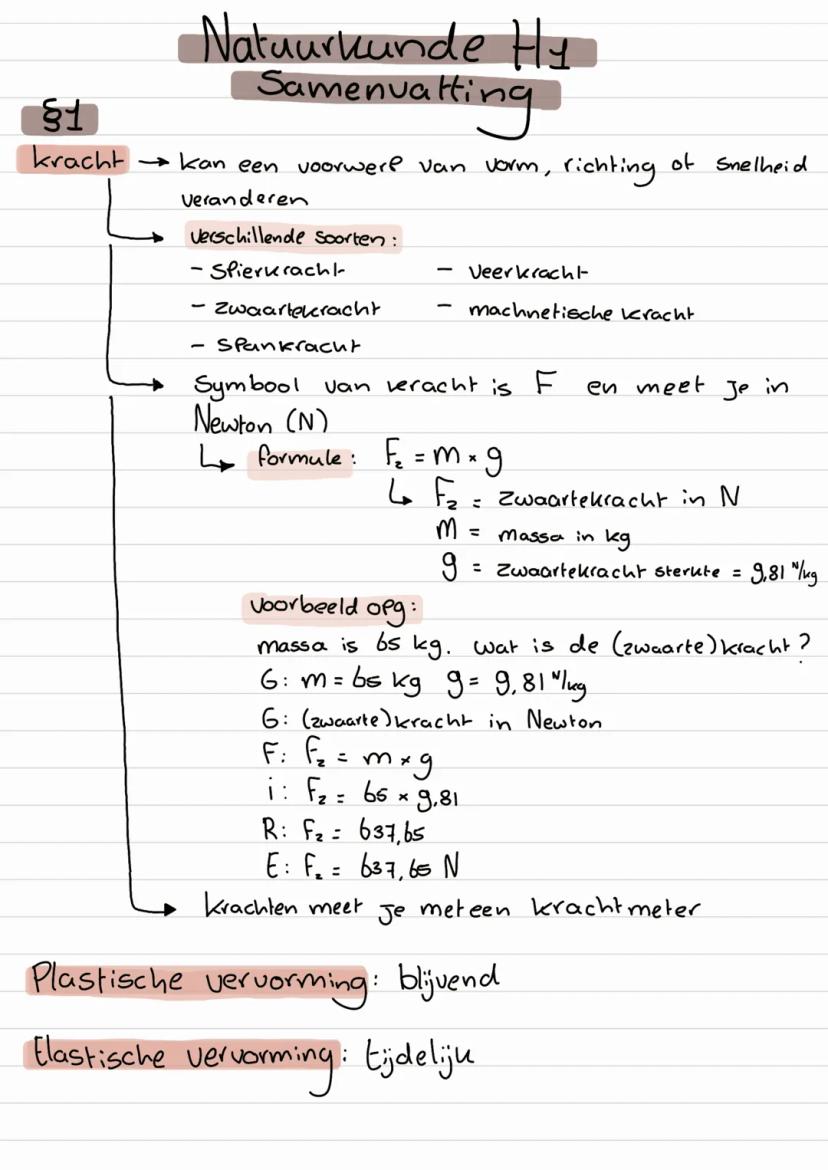 Natuurkunde H1
Samenvatting
§1
kracht → kan een voorwerp van vorm, richting of snelheid
veranderen
verschillende soorten:
- spierkracht - veerkracht
- zwaartekracht - machnetische kracht
- spankracht
Symbool van kracht is F en meet je in
Newton (N)
formule: Fz = m × g
Fz = zwaartekracht in N
m = massa in kg
g = zwaartekracht sterkte = 9,81 N/kg
Voorbeeld opg:
massa is 65 kg. wat is de (zwaarte)kracht?
G: m = 65 kg g = 9,81 N/kg
G: (zwaarte)kracht in Newton
F: Fz = m × g
i: Fz = 65 × 9,81
R: Fz = 637,65
E: Fz = 637,65 N
krachten meet je met een krachtmeter
Plastische vervorming: blijvend
Elastische vervorming: tijdelijk